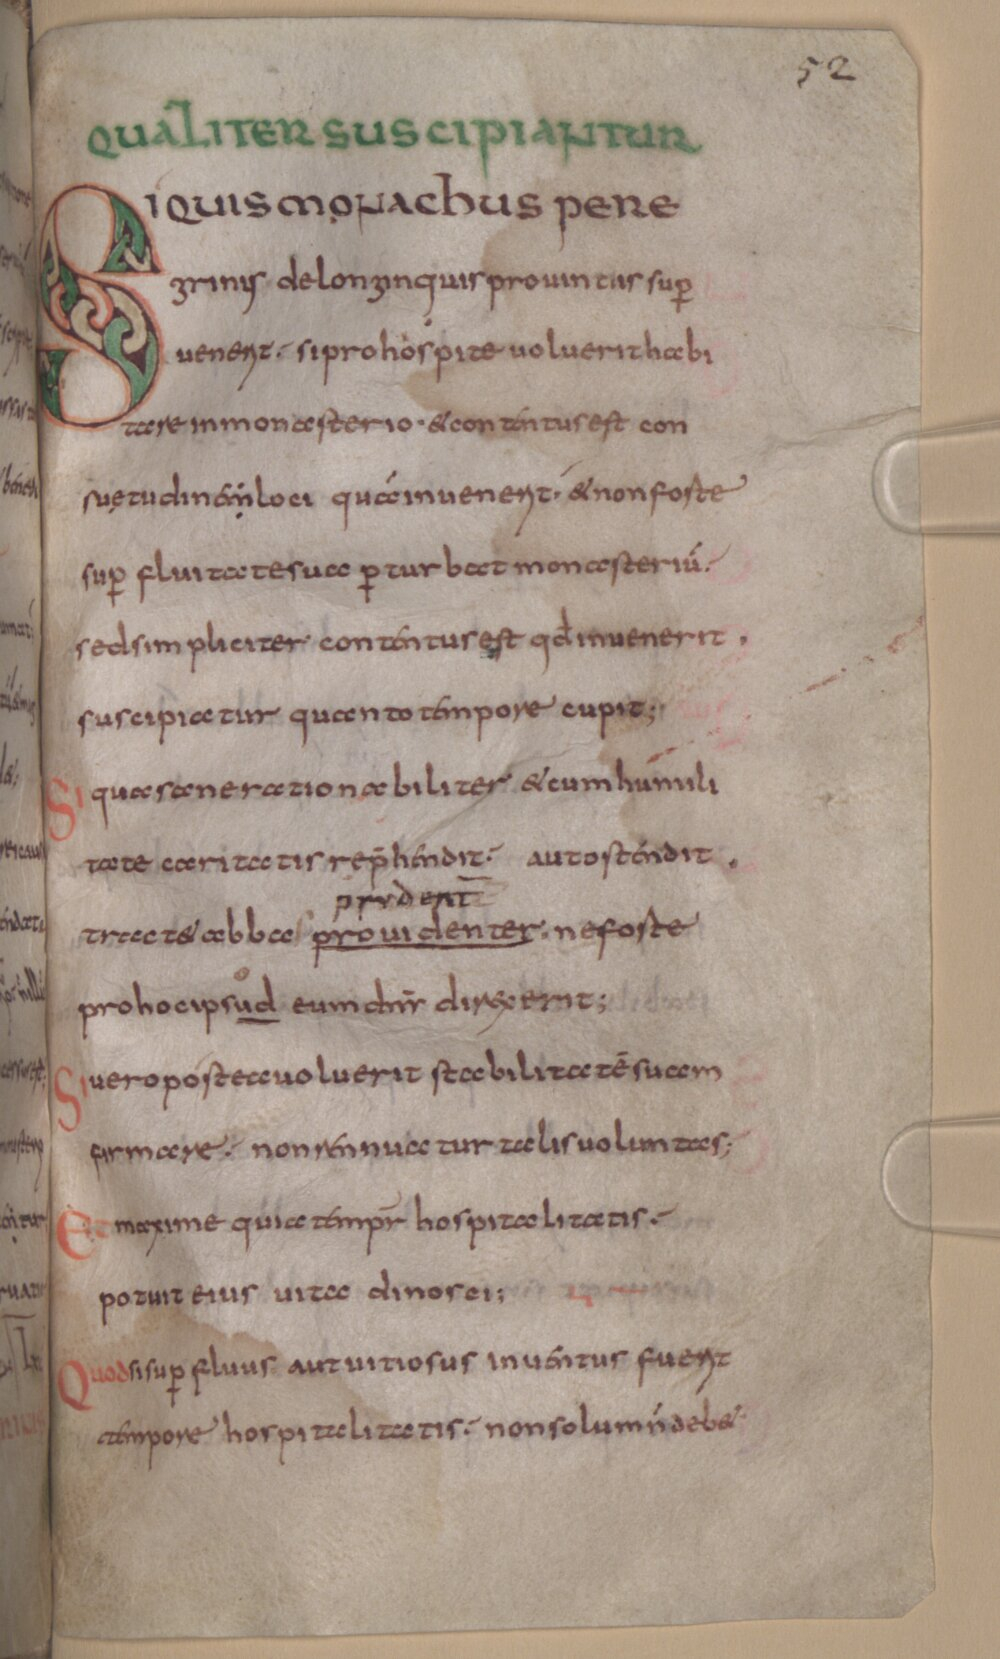 52
QUALITER SUSCIPIANTUR
SIQUIS MONACHUS PERE
grinus delonginquis provintiis sup
uenerit. siprohospite uoluerit habi
tare inmonasterio. &contentus est con
suetudinem loci quam inuenerit. &nonforte
sup fluitate sua pturbat monasteriū.
sed simpliciter contentus est qd inuenerit.
suscipiatur quanto tempore cupit;
Si qua sane rationabiliter &cum humili
tate caritatis rephendit. aut ostendit.
prudent
tractet abbas prouidenter. neforte
o
prohocipsud eum dns direxerit;
Si uero postea uoluerit stabilitatē suam
firmare. non rennuatur talis uoluntas;
Et maxime quia tempr hospitalitatis.
potuit eius uita dinosci;
Quod si sup fluus aut uitiosus inuentus fuerit
tempore hospitalitatis. non solum n debet